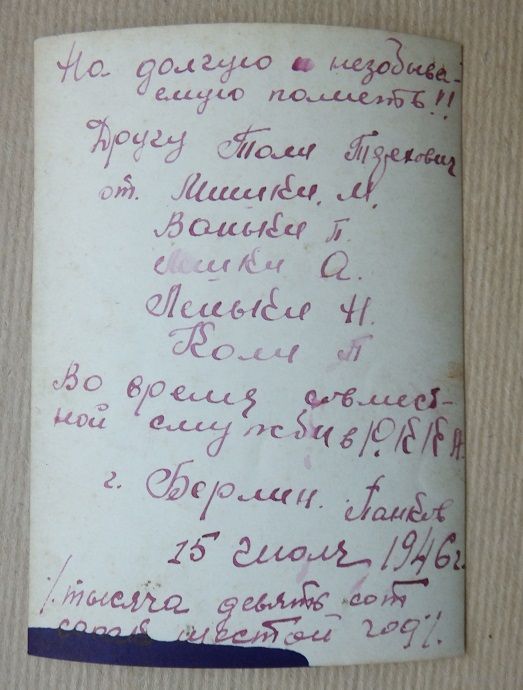 На долгую и незобыва-
емую поменть!!
Другу Толи
от Мишки. М.
Ваньки П.
Мишки А.
Леньки Н.
Коли П
Во время совмест-
ной службы в Р.К.К.А.
г. Берлин. Панков
15 июля 1946г.
/. тысяча девять сот
сорок шестой год/.